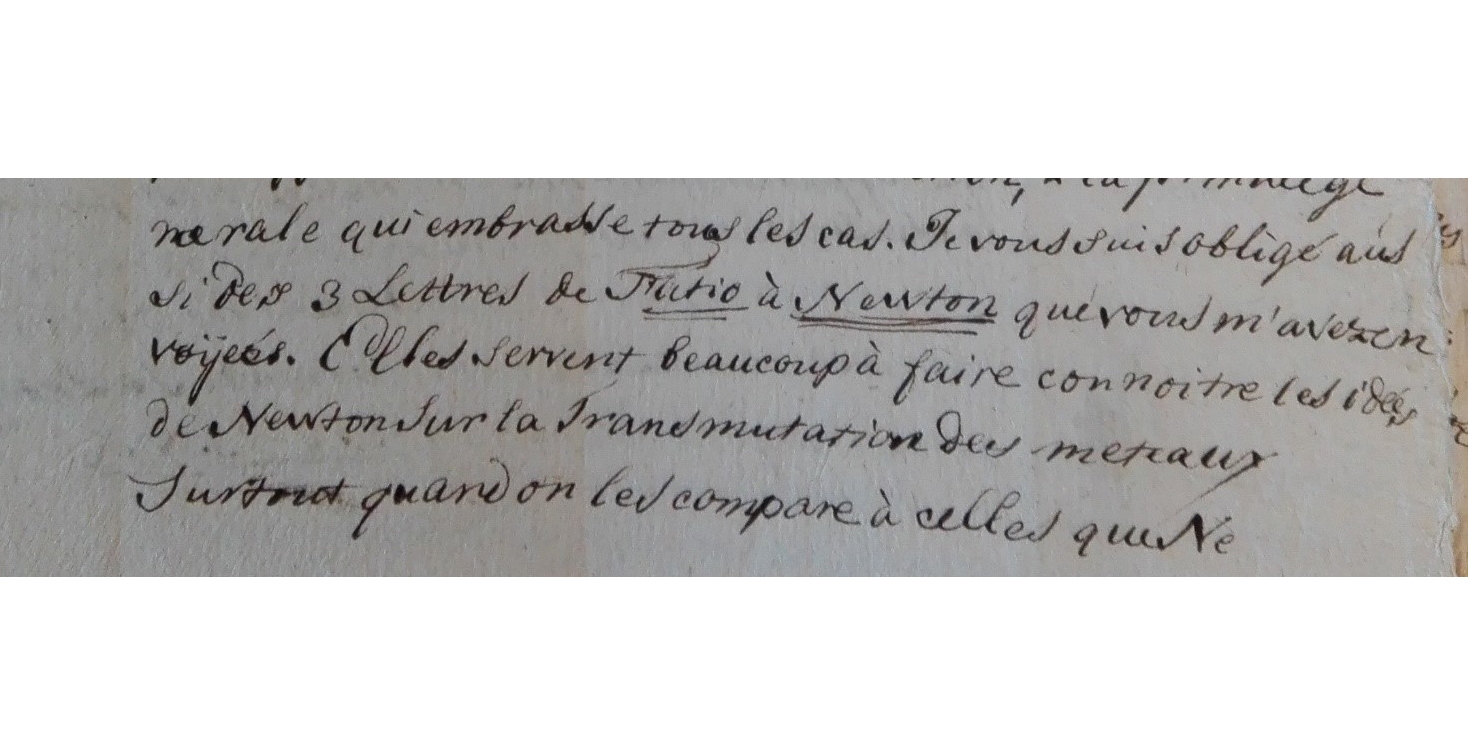 nerale qui embrasse tous les cas. Je vous suis obligé aus
si des 3 Lettres de Fatio à Newton que vous m'avez en:
voÿeés. Elles servent beaucoup à faire connoitre les idées
de Newton sur la Transmutation des metaux
Surtout quand on les compare à celles que Ne